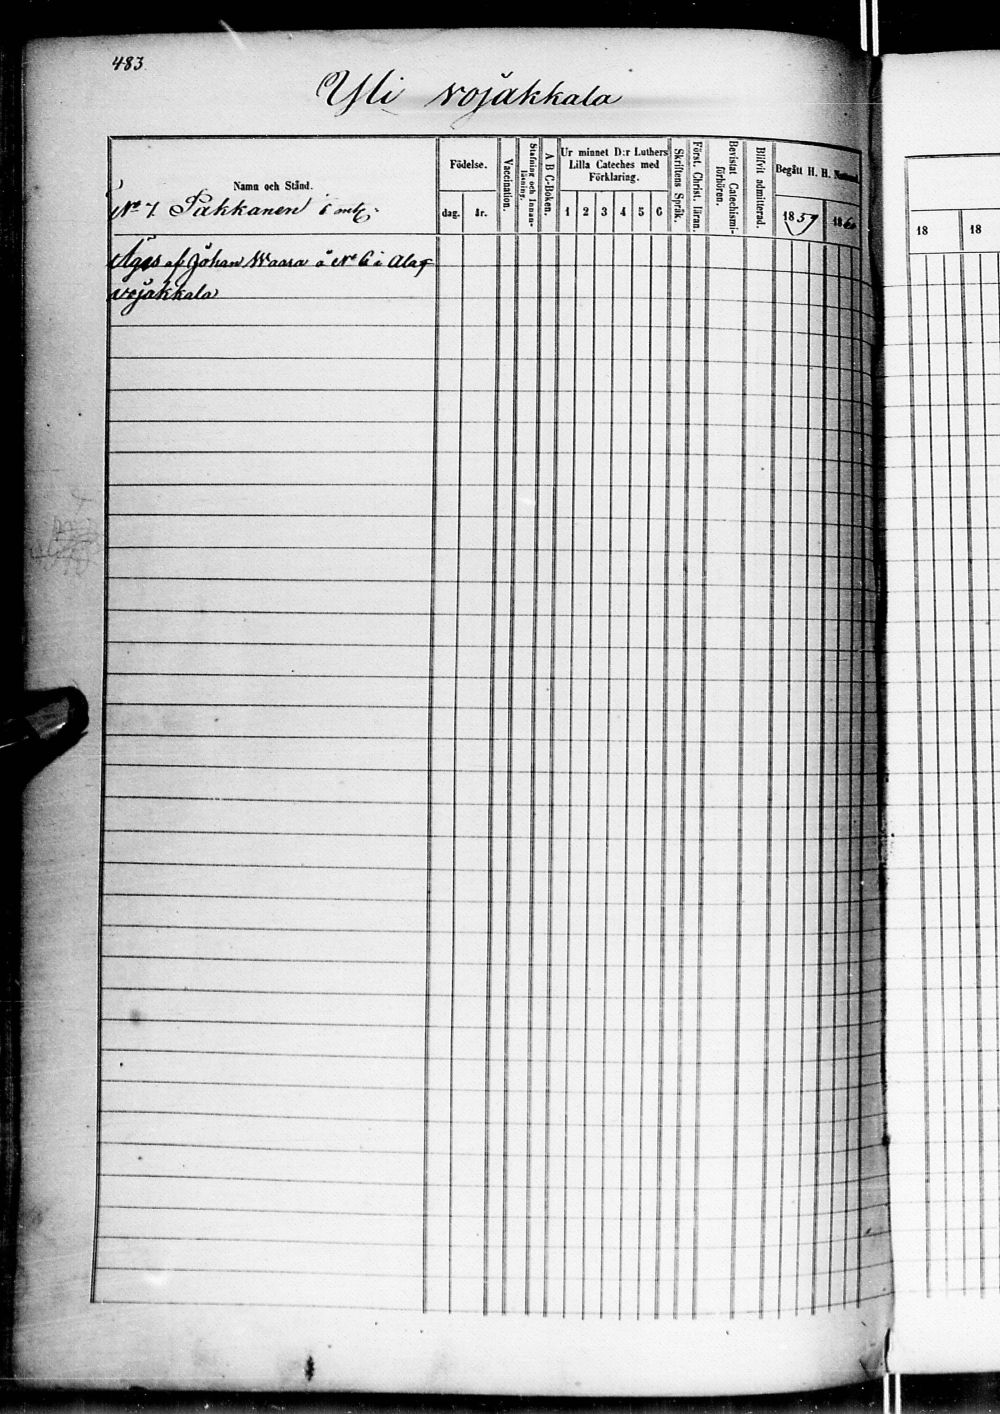 483.
Yli vojakkala
Namn och Stånd.
Födelse.
dag.
år.
Vaccination.
Stafning och Innan-
läsning.
A B C-Boken.
Ur minnet D:r Luthers
Lilla Cateches med
Förklaring.
1 2 3 4 5 6
Skriftens Språk.
Först. Christ. läran.
Bevistat Catechismi-
förhören.
Blifvit admitterad.
Begått H. H. Nattvard.
1859
1860
18
18
No 7. Pakkanen
Äges af Johan Waara å No 6 i Ala
vojakkala